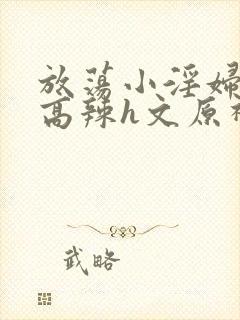 放荡小淫婦
高辣h文原神
武略